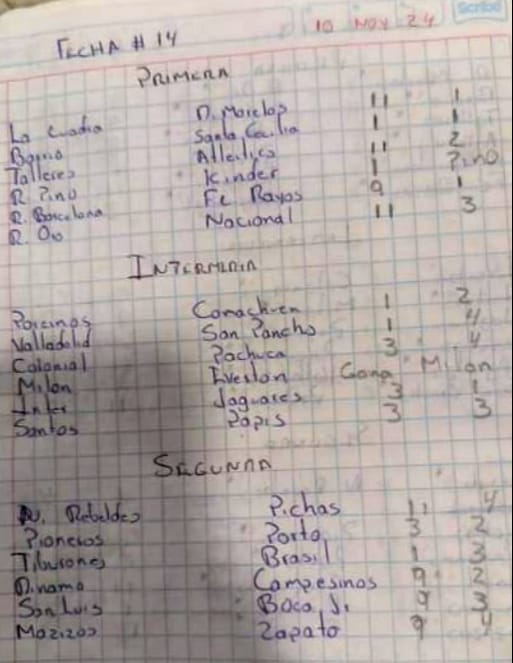 Scribd
10 NOV 24
FECHA # 14
PRIMERA
La Cuadra D. Morelos 11 1
Barrio Santa Cecilia 1 1
Talleres Atletico 11 2
R. Pino Kinder 1 Pino
R. Barcelona Fc Rayos 9 1
R. Oro Nacional 11 3
INTERMEDIA
Porcinos Comachuen 1 2
Valladolid San Pancho 1 4
Colonial Pachuca 3 4
Milan Everton Gana Milan
Inter Jaguares 3 1
Santos Papis 3 3
SEGUNDA
N. Rebeldes Pichas 11 4
Pioneros Porto 3 2
Tiburones Brasil 1 3
Dinamo Campesinos 9 2
San Luis Boca Jr 9 3
Mazizos Zapato 9 4